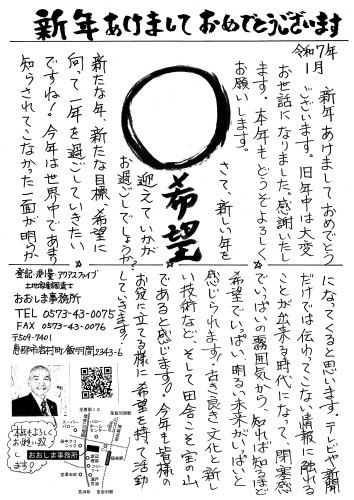 新年あけましておめでとうございます
令和7年
1月
新年あけましておめでとう
ございます。旧年中は大変
お世話になりました。感謝いたし
ます。本年もどうぞよろしく
お願いします。
さて、新しい年を
迎えていかが
お過ごしでしょうか?
希望
新たな年、新たな目標、希望に
向って一年を過ごしていきたい
ですね!今年は世界中であまり
知らされてこなかった一面が明らか
になってくると思います。テレビや新聞
だけでは伝わってこない情報に触れる
ことが出来る時代になって、閉塞感
でいっぱいの雰囲気から、知れば知るほど
希望でいっぱい、明るい未来がいっぱいと
感じられます!古き良き文化と新し
い技術など、そして田舎こそ宝の山
であると感じます。今年も皆様の
お役に立てる様に希望を持て活動
していきます!
登記・測量・アクアスファイブ
土地家屋調査士
おおしま事務所
TEL 0573-43-0075
FAX 0573-43-0076
〒509-7401
恵那市岩村町飯羽間2343-6
本年もよろしく
お願い致
します!
おおしま事務所